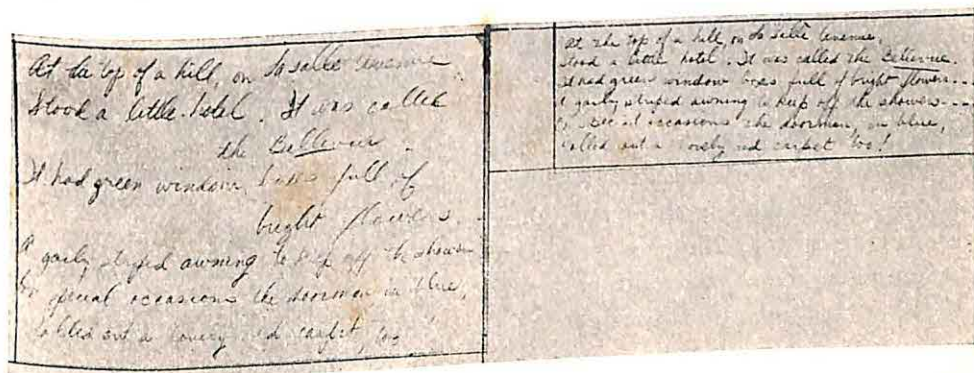 At the top of a hill, on La Salle Avenue
Stood a little hotel. It was called
the Bellevue.
It had green window boxes full of
bright flowers
A gaily striped awning to keep off the showers
On special occasions the doorman in blue,
rolled out a lovely red carpet, too
At the top of a hill, on La Salle Avenue,
Stood a little hotel. It was called the Bellevue.
It had green window boxes full of bright flowers...
A gaily striped awning to keep off the showers...
On special occasions the doorman, in blue,
rolled out a lovely red carpet too!